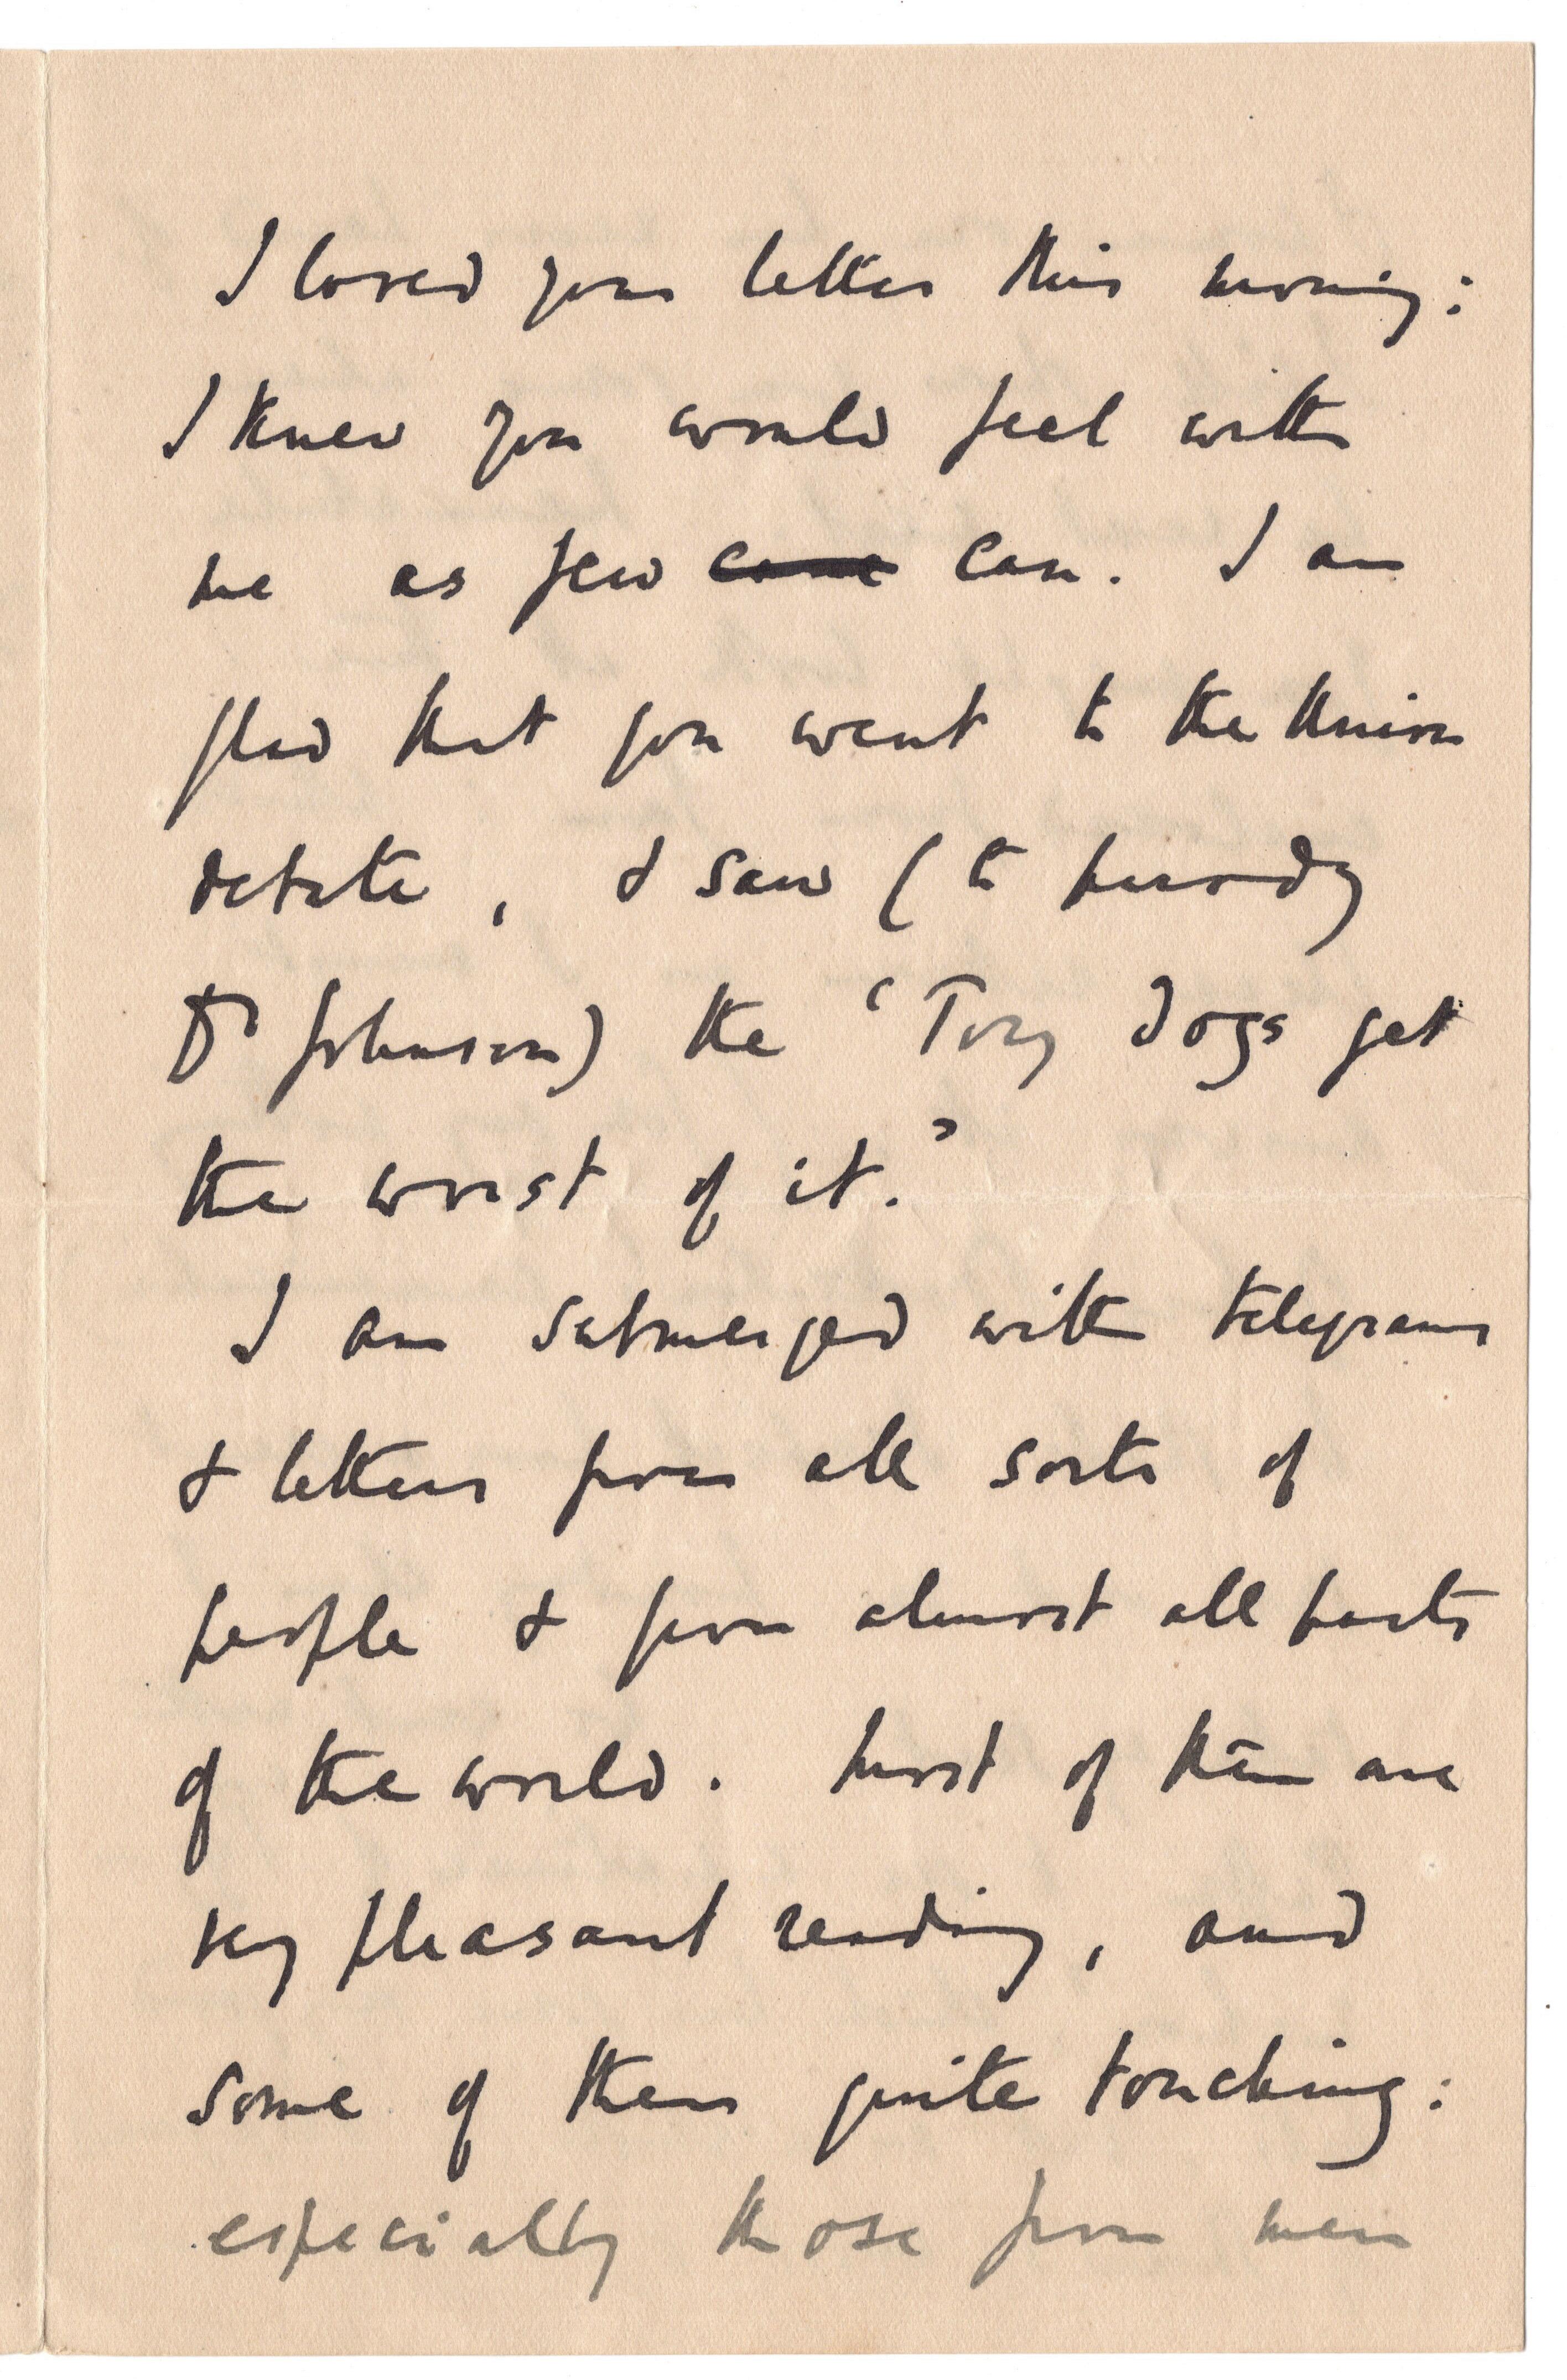 I loved your letter this morning:
I knew you would feel with
me as few ~~come~~ can. I am
glad that you went to the Union
debate, & saw (to parody
Dr Johnson) the 'Tory dogs get
the worst of it.'
I am submerged with telegrams
& letters from all sorts of
people & from almost all parts
of the world. Most of them are
very pleasant reading, and
some of them quite touching:
especially those from men